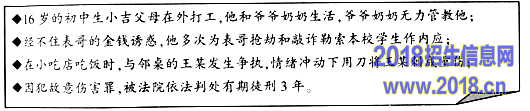 ◆16岁的初中生小吉父母在外打工，他和爷爷奶奶生活，爷爷奶奶无力管教他；
◆经不住表哥的金钱诱惑，他多次为表哥抢劫和敲诈勒索本校学生作内应；
◆在小吃店吃饭时，与邻桌的王某发生争执，情绪冲动下用刀将王某刺
◆因犯故意伤害罪，被法院依法判处有期徒刑3年。
2018招生信息网
www.2018.cn